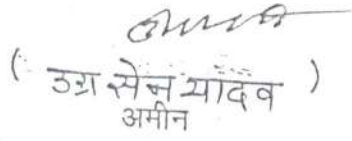 ( उग्र सेन यादव )
अमीन